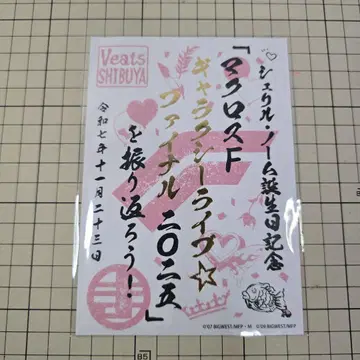 ♡シェリル・ノーム誕生日記念
「マクロスF
ギャラクシーライヴ☆
ファイナル二〇二五」
を振り返ろう!
令和七年十一月二十三日
Veats
SHIBUYA
©'07 BIGWEST/MFP・M ©'09 BIGWEST/MFP